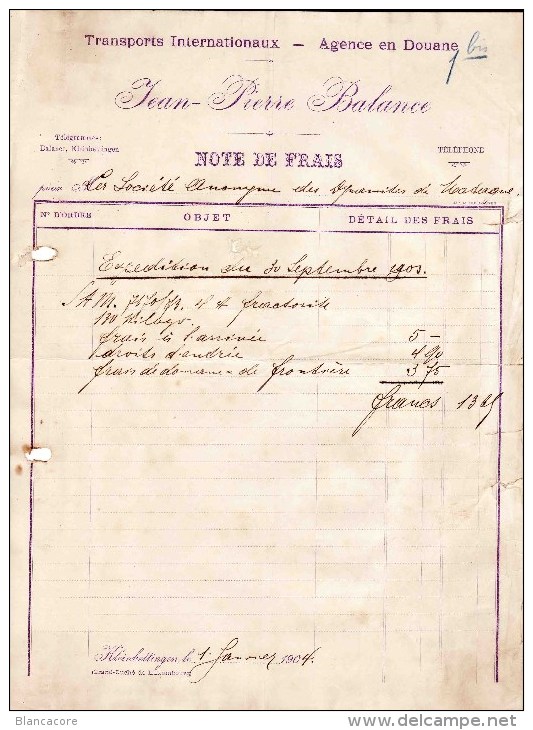 Transports Internationaux — Agence en Douane
1 bis
Jean-Pierre Balance
Télégrammes:
Balance, Kleinbettingen
TÉLÉPHONE
NOTE DE FRAIS
pour la Société Anonyme des Dynamites de Matagne
Nº D'ORDRE OBJET DÉTAIL DES FRAIS
Expédition du 30 Septembre 1903.
frais à l'arrivée 5 –
droits d'entrée 4 90
frais de douane de frontière 3 75
francs 13 65
Kleinbettingen, le 1 Janvier 1904.
(Grand-Duché de Luxembourg)
Blancacore
www.delcampe.net